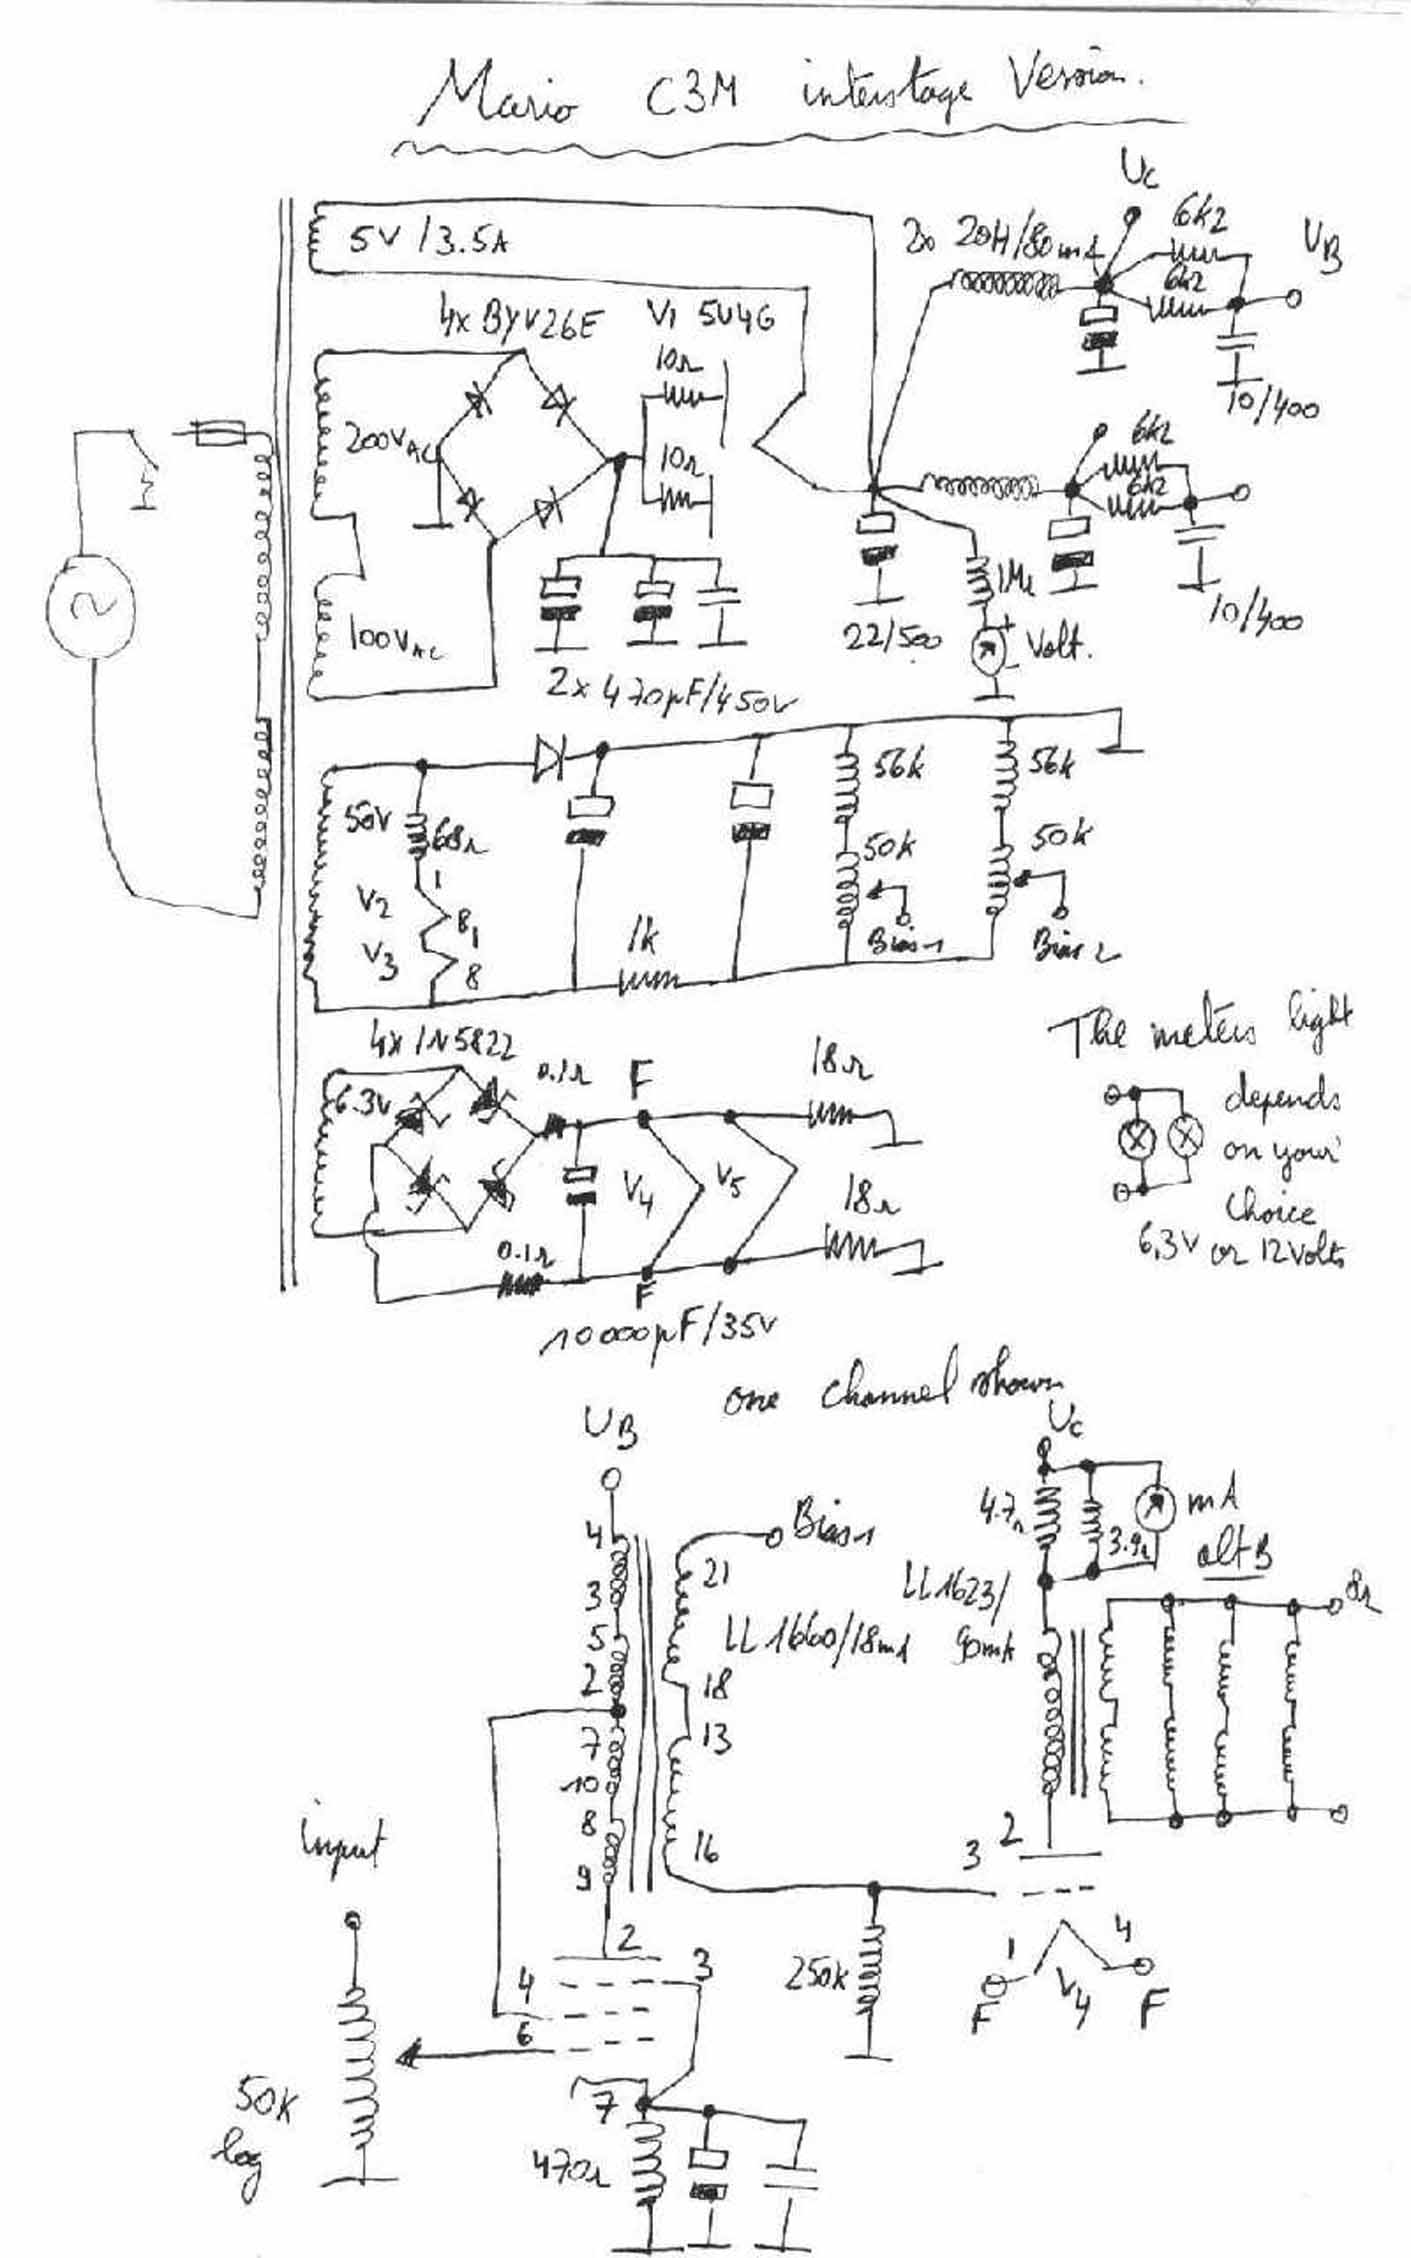 Mario C3M interstage Version.
Uc
6k2
UB
5V/3.5A
2x 20H/80mA
6k2
4x BYV26E
V1 5U4G
10Ω
10/400
200VAC
10Ω
6k2
6k2
1MΩ
10/400
22/500
+
Volt.
-
100VAC
2x 470µF/450V
56k
56k
50V
68Ω
50k
50k
1
V2
8
1
Bias 1
Bias 2
V3
8
1k
The meters light
depends
on your
Choice
6,3V or 12Volts
4x 1N5822
0.1Ω
F
18Ω
6.3V
V4
V5
18Ω
0.1Ω
F
10000µF/35V
one channel shown
UB
Uc
4
Bias 1
4.7Ω
mA
3.9Ω
alt B
3
21
LL1623/
90mA
8Ω
5
LL1660/18mA
2
18
7
13
10
8
16
9
2
3
input
2
3
4
6
250k
1
4
F
V4
F
50k
log
7
470Ω